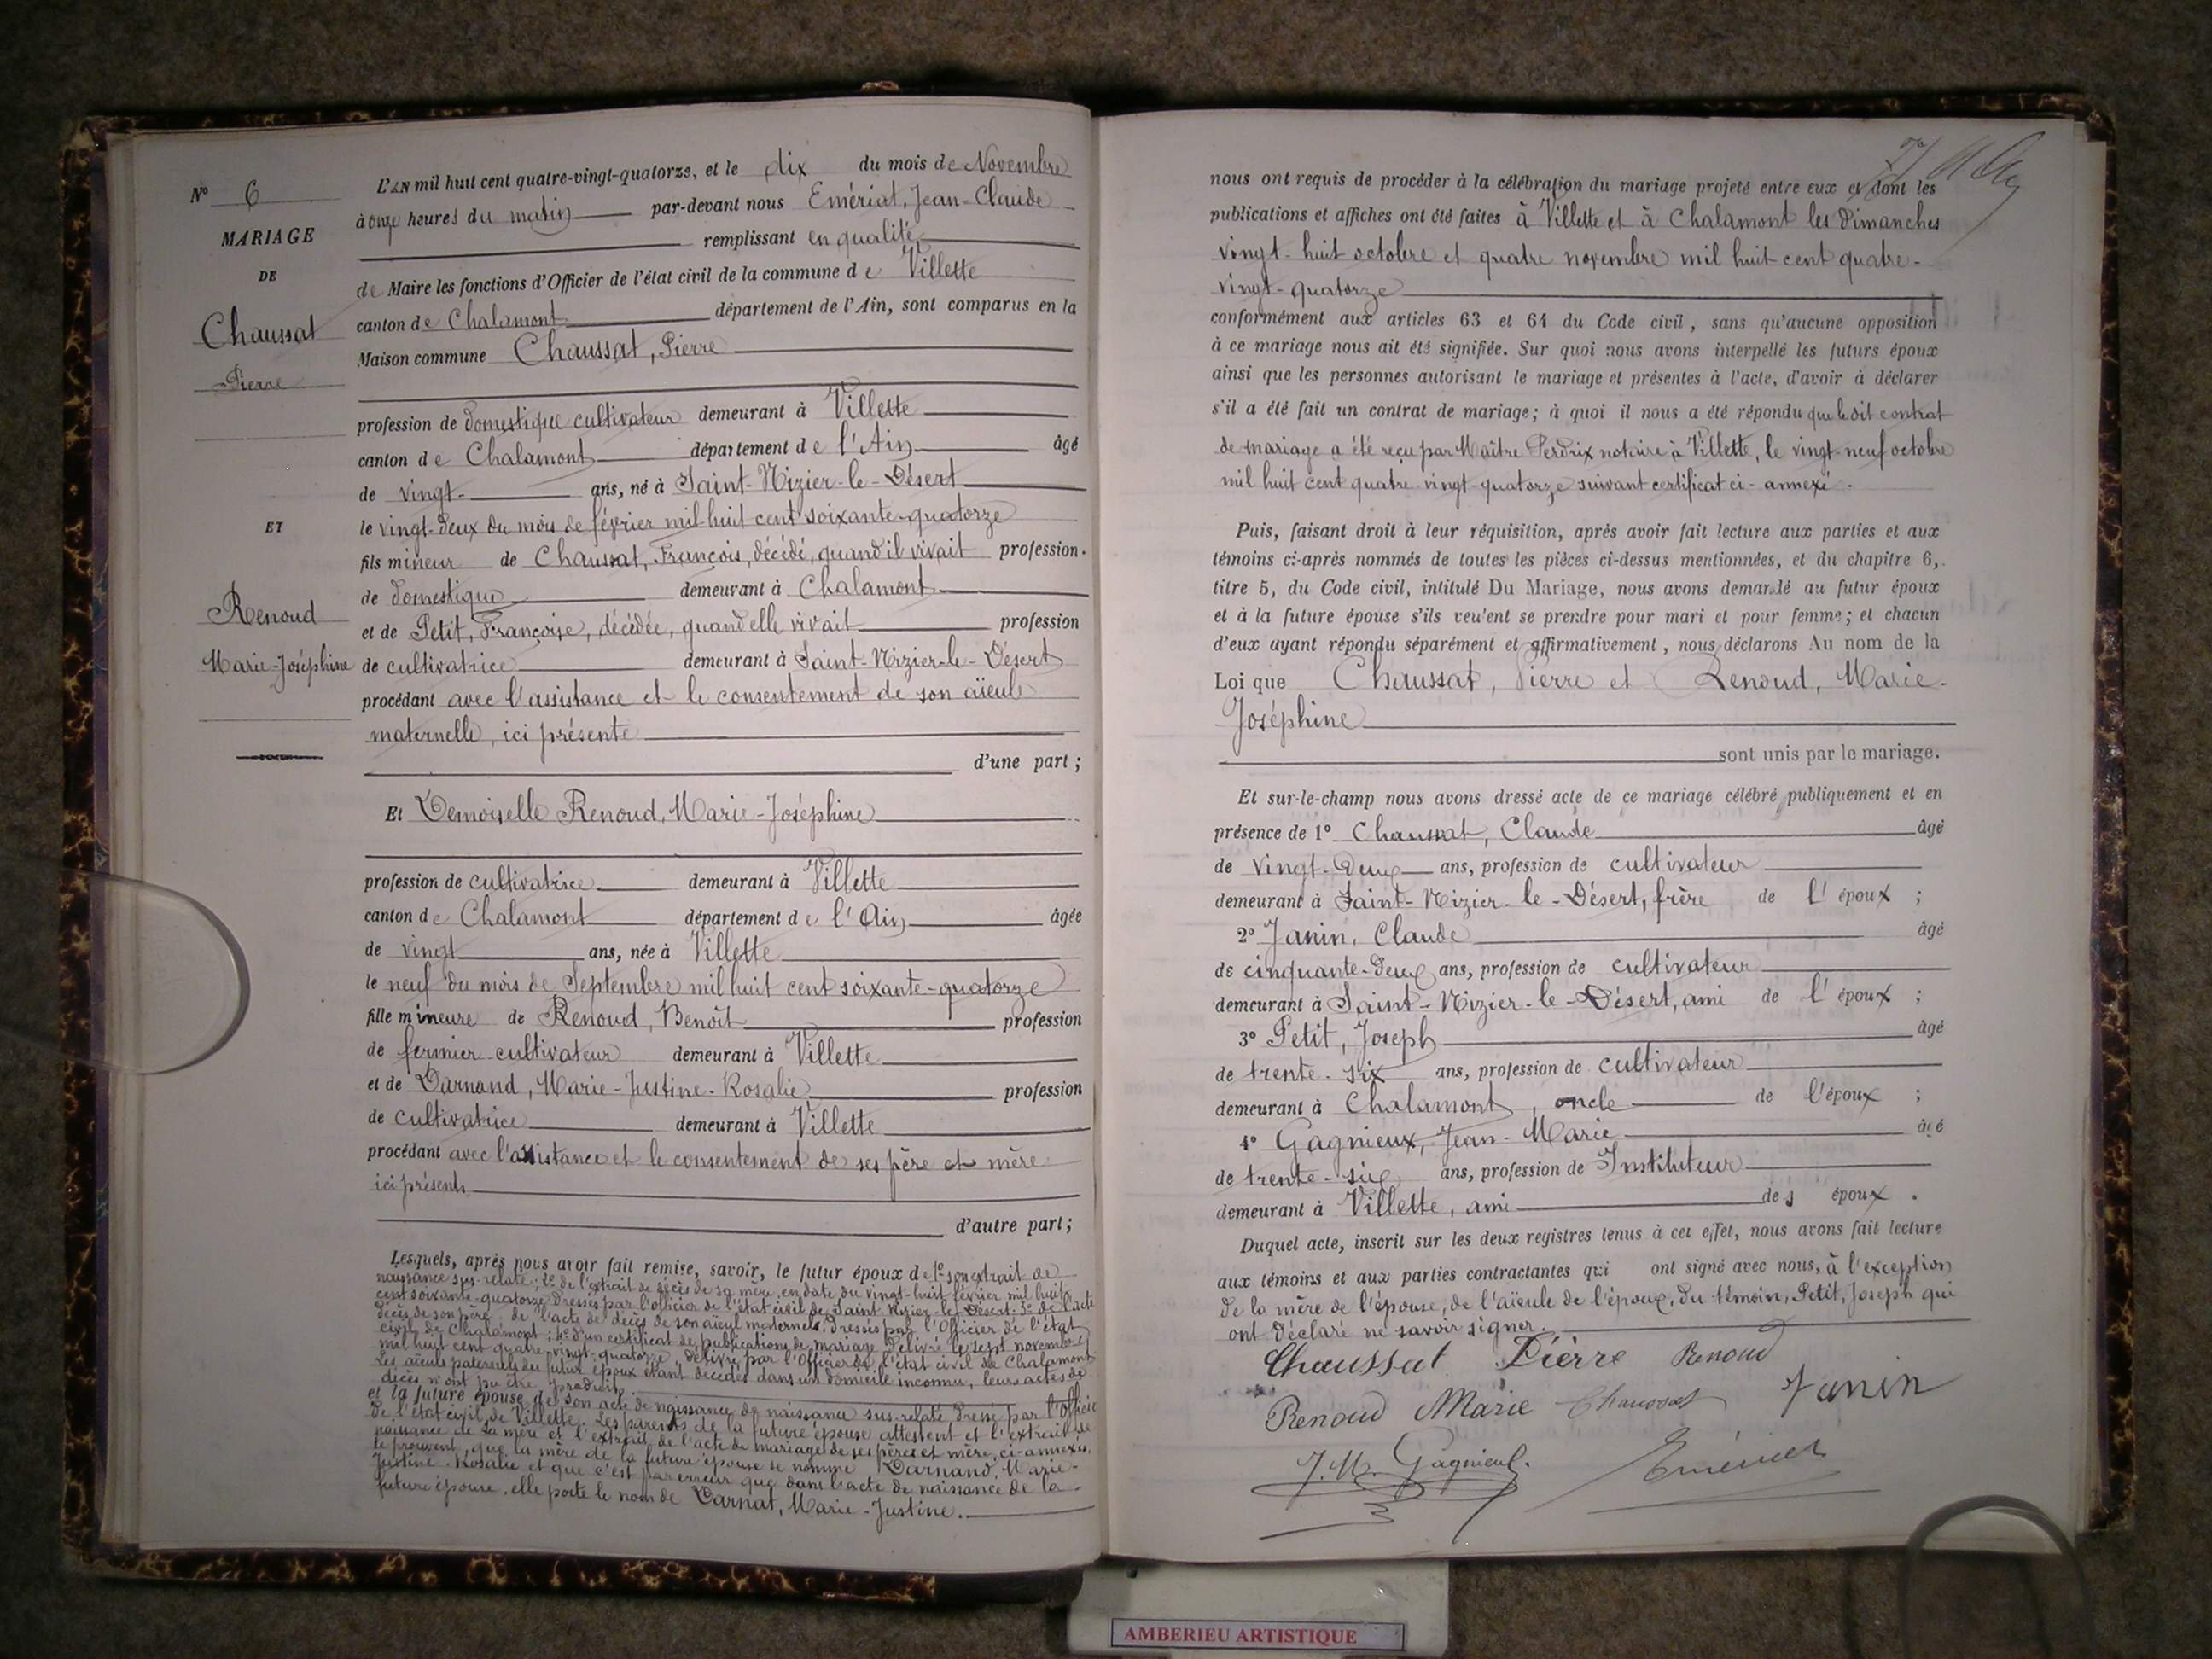 N° 6
MARIAGE
DE
Chaussat
Pierre
ET
Renoud
Marie-Joséphine
L'AN mil huit cent quatre-vingt-quatorze, et le dix du mois de Novembre
à onze heures du matin par-devant nous Emériat, Jean-Claude
remplissant en qualité
de Maire les fonctions d'Officier de l'état civil de la commune de Villette
canton de Chalamont département de l'Ain, sont comparus en la
Maison commune Chaussat, Pierre
profession de domestique cultivateur demeurant à Villette
canton de Chalamont département de l'Ain âgé
de vingt- ans, né à Saint-Nizier-le-Désert
le vingt-deux du mois de février mil huit cent soixante-quatorze
fils mineur de Chaussat, François, décédé, quand il vivait profession
de domestique demeurant à Chalamont
et de Petit, Françoise, décédée, quand elle vivait profession
de cultivatrice demeurant à Saint-Nizier-le-Désert
procédant avec l'assistance et le consentement de son aïeule
maternelle, ici présente
d'une part;
Et Demoiselle Renoud, Marie-Joséphine
profession de cultivatrice demeurant à Villette
canton de Chalamont département de l'Ain âgée
de vingt ans, née à Villette
le neuf du mois de Septembre mil huit cent soixante-quatorze
fille mineure de Renoud, Benoît profession
de fermier-cultivateur demeurant à Villette
et de Darnand, Marie-Justine-Rosalie profession
de cultivatrice demeurant à Villette
procédant avec l'assistance et le consentement de ses père et mère
ici présents
d'autre part;
Lesquels, après nous avoir fait remise, savoir, le futur époux de 1° son extrait de
naissance sus-relaté; 2° de l'extrait de décès de sa mère, en date du vingt-huit février mil huit
cent soixante-quatorze dressés par l'officier de l'état civil de Saint-Nizier-le-Désert. 3° de l'acte
décès de son père, de l'acte de décès de son aïeul maternel, dressés par l'Officier de l'état
civil de Chalamont; 4° d'un certificat de publications de mariage délivré le sept novembre
mil huit cent quatre-vingt-quatorze, délivré par l'Officier de l'état civil de Chalamont
Les aïeuls paternels du futur époux étant décédés dans un domicile inconnu, leurs actes de
décès n'ont pu être produits.
et la future épouse de son acte de naissance de naissance sus-relaté dressé par l'Officier
de l'état civil de Villette. Les parents de la future épouse attestent et l'extrait de
naissance de la mère et l'extrait de l'acte de mariage de ses pères et mère, ci-annexés,
le prouvent, que la mère de la future épouse se nomme Darnand, Marie-
Justine-Rosalie et que c'est par erreur que dans l'acte de naissance de la
future épouse, elle porte le nom de Darnat, Marie-Justine.
nous ont requis de procéder à la célébration du mariage projeté entre eux et dont les
publications et affiches ont été faites à Villette et à Chalamont les Dimanches
vingt-huit octobre et quatre novembre mil huit cent quatre-
vingt-quatorze
conformément aux articles 63 et 64 du Code civil, sans qu'aucune opposition
à ce mariage nous ait été signifiée. Sur quoi nous avons interpellé les futurs époux
ainsi que les personnes autorisant le mariage et présentes à l'acte, d'avoir à déclarer
s'il a été fait un contrat de mariage; à quoi il nous a été répondu que ledit contrat
de mariage a été reçu par Maître Perdrix notaire à Villette, le vingt-neuf octobre
mil huit cent quatre-vingt-quatorze suivant certificat ci-annexé.
Puis, faisant droit à leur réquisition, après avoir fait lecture aux parties et aux
témoins ci-après nommés de toutes les pièces ci-dessus mentionnées, et du chapitre 6,
titre 5, du Code civil, intitulé Du Mariage, nous avons demandé au futur époux
et à la future épouse s'ils veulent se prendre pour mari et pour femme; et chacun
d'eux ayant répondu séparément et affirmativement, nous déclarons Au nom de la
Loi que Chaussat, Pierre et Renoud, Marie-
Joséphine
sont unis par le mariage.
Et sur-le-champ nous avons dressé acte de ce mariage célébré publiquement et en
présence de 1° Chaussat, Claude âgé
de vingt-deux ans, profession de cultivateur
demeurant à Saint-Nizier-le-Désert, frère de l'époux;
2° Janin, Claude âgé
de cinquante-deux ans, profession de cultivateur
demeurant à Saint-Nizier-le-Désert, ami de l'époux;
3° Petit, Joseph âgé
de trente-six ans, profession de cultivateur
demeurant à Chalamont, oncle de l'époux;
4° Gagnieux, Jean-Marie âgé
de trente-six ans, profession de Instituteur
demeurant à Villette, ami des époux.
Duquel acte, inscrit sur les deux registres tenus à cet effet, nous avons fait lecture
aux témoins et aux parties contractantes qui ont signé avec nous, à l'exception
de la mère de l'épouse, de l'aïeule de l'époux, du témoin, Petit, Joseph qui
ont déclaré ne savoir signer.
Chaussat Pièrre Renoud
Renoud Marie Chaussat Janin
J.M. Gagnieux. Emériat
AMBERIEU ARTISTIQUE